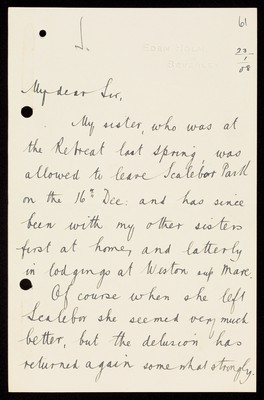 61
23
1
08
My dear Sir,
My sister, who was at
the Retreat last spring, was
allowed to leave Scalebor Park
on the 16th Dec: and has since
been with my other sisters
first at home, and latterly
in lodgings at Weston sup Mare.
Of course when she left
Scalebor she seemed very much
better, but the delusion has
returned again some what strongly.